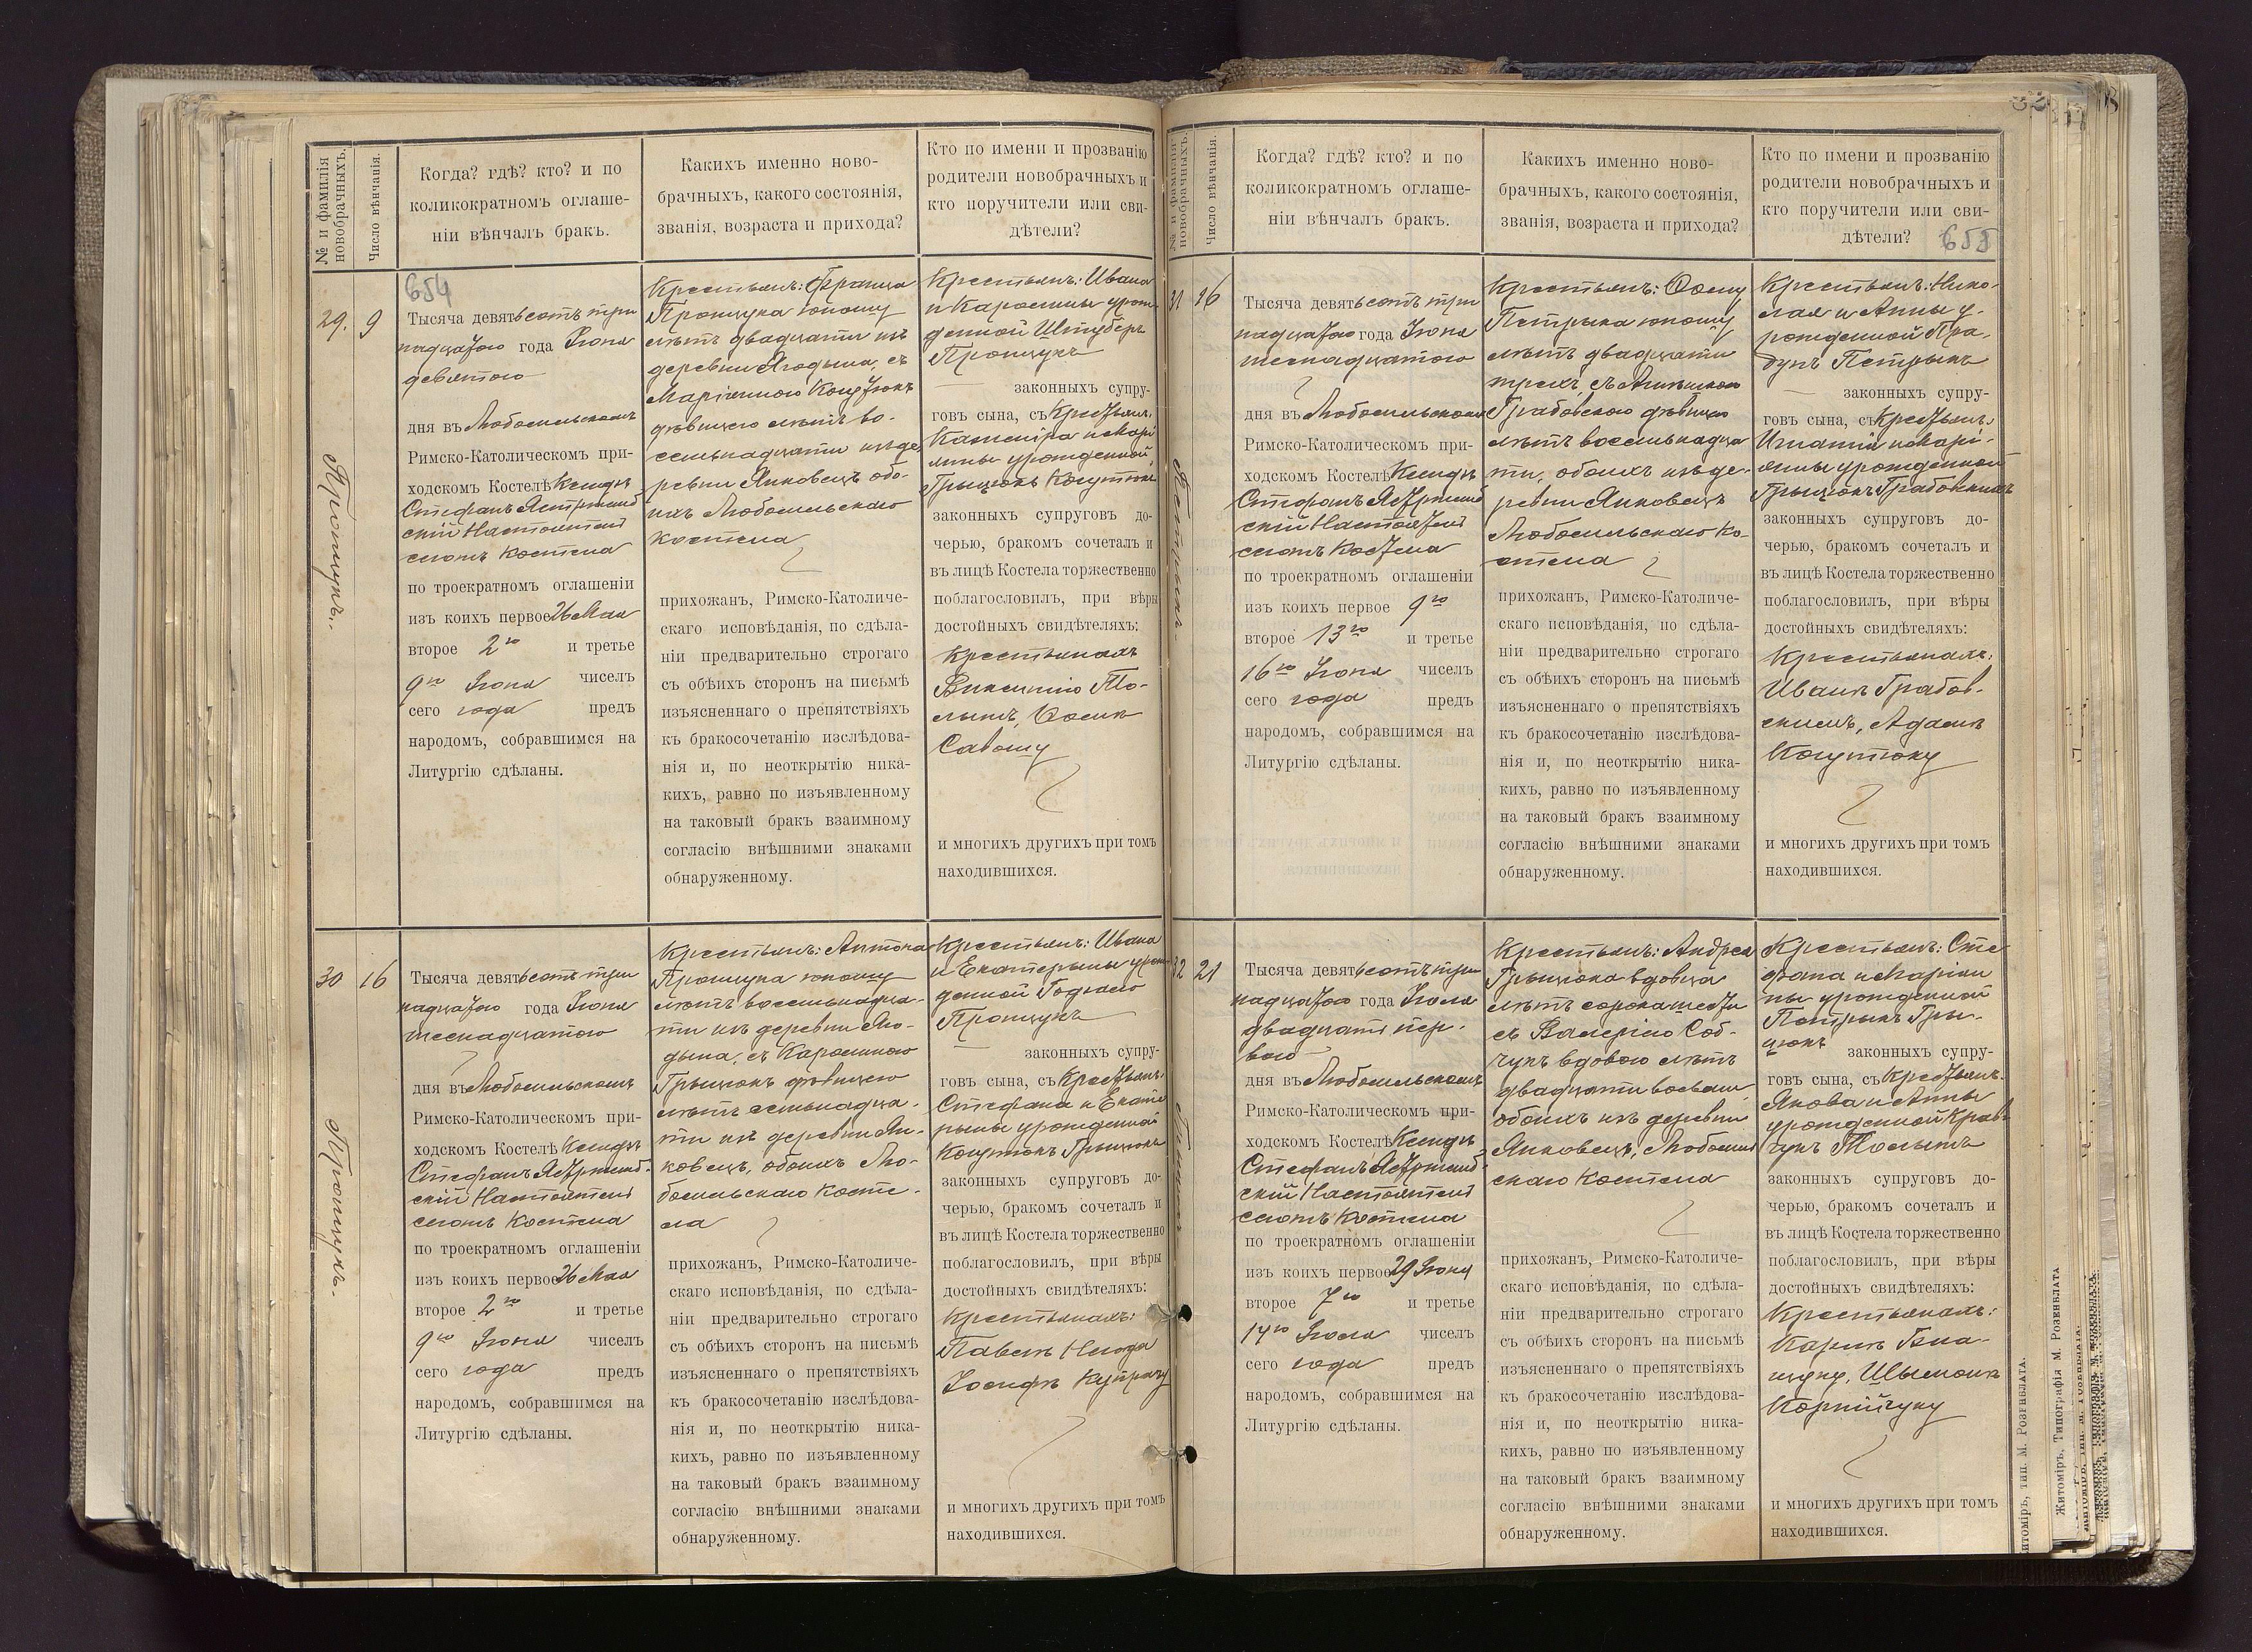 № и фамилія
новобрачныхъ.
Число вѣнчанія.
Когда? гдѣ? кто? и по
коликократномъ оглаше-
ніи вѣнчалъ бракъ.
Каких­ъ именно ново-
брачныхъ, какого состоянія,
званія, возраста и прихода?
Кто по имени и прозванію
родители новобрачныхъ и
кто поручители или сви-
дѣтели?
654
29. 9
Прощукъ.
Тысяча девятьсотъ три
надцатого года Іюня
девятого
дня въ Любомльскомъ
Римско-Католическомъ при-
ходскомъ Костелѣ Ксендзъ
Стефанъ
скій Настоятель
сегомъ Костела
по троекратномъ оглашеніи
изъ коихъ первое 26 Мая
второе 2го и третье
9го Іюня чиселъ
сего года предъ
народомъ, собравшимся на
Литургію сдѣланы.
Крестьянъ: Франца
Прощука юношу
лѣтъ двадцати изъ
деревни Ягодына, съ
Маріянною Когутюкъ
дѣвицею лѣтъ во-
семьнадцати изъ де
ревни Янковецъ обо-
ихъ Любомльскаго
Костела
прихожанъ, Римско-Католиче-
скаго исповѣданія, по сдѣла-
ніи предварительно строгаго
съ обѣихъ сторонъ на письмѣ
изъясненнаго о препятствіяхъ
къ бракосочетанію изслѣдова-
нія и, по неоткрытію ника-
кихъ, равно по изъявленному
на таковый бракъ взаимному
согласію внѣшними знаками
обнаруженному.
Крестьянъ: Ивана
и Каролины урож-
денной Штуберъ
Прощукъ
законныхъ супру-
говъ сына, съ Крестьянъ
Казимiра и Марі
янны урожденной
Грыцюкъ Когутюкъ
законныхъ супруговъ до-
черью, бракомъ сочеталъ и
въ лицѣ Костела торжественно
поблагословилъ, при вѣры
достойныхъ свидѣтеляхъ:
Крестьянахъ
Викентію То-
лытъ, Осипъ
Савошу
и многихъ другихъ при томъ
находившихся.
30 16
Прощукъ.
Тысяча девятьсотъ три
надцатого года Іюня
шеснадцатого
дня въ Любомльскомъ
Римско-Католическомъ при-
ходскомъ Костелѣ Ксендзъ
Стефанъ
скій Настоятель
сегомъ Костела
по троекратномъ оглашеніи
изъ коихъ первое 26 Мая
второе 2го и третье
9го Іюня чиселъ
сего года предъ
народомъ, собравшимся на
Литургію сдѣланы.
Крестьянъ: Антона
Прощука юношу
лѣтъ восемьнадца-
ти изъ деревни Яго-
дына, съ Каролиною
Грыцюкъ дѣвицею
лѣтъ семьнадца-
ти изъ деревни Ян-
ковецъ, обоихъ Лю-
бомльскаго Косте-
ла
прихожанъ, Римско-Католиче-
скаго исповѣданія, по сдѣла-
ніи предварительно строгаго
съ обѣихъ сторонъ на письмѣ
изъясненнаго о препятствіяхъ
къ бракосочетанію изслѣдова-
нія и, по неоткрытію ника-
кихъ, равно по изъявленному
на таковый бракъ взаимному
согласію внѣшними знаками
обнаруженному.
Крестьянъ: Ивана
и Екатерыны урож
денной
Прощукъ
законныхъ супру-
говъ сына, съ Крестьянъ
Стефана и Екате
рыны урожденной
Когутюкъ Грыцюкъ
законныхъ супруговъ до-
черью, бракомъ сочеталъ и
въ лицѣ Костела торжественно
поблагословилъ, при вѣры
достойныхъ свидѣтеляхъ:
Крестьянахъ:
Павелъ
Іосифъ
и многихъ другихъ при томъ
находившихся.
№ и фамилія
новобрачныхъ.
Число вѣнчанія.
Когда? гдѣ? кто? и по
коликократномъ оглаше-
ніи вѣнчалъ бракъ.
Какихъ именно ново-
брачныхъ, какого состоянія,
званія, возраста и прихода?
Кто по имени и прозванію
родители новобрачныхъ и
кто поручители или сви-
дѣтели?
655
31 16
Тысяча девятьсотъ три
надцатого года Іюня
шеснадцатого
дня въ Любомльскомъ
Римско-Католическомъ при-
ходскомъ Костелѣ Ксендзъ
Стефанъ
скій Настоятель
сегомъ Костела
по троекратномъ оглашеніи
изъ коихъ первое 9го
второе 13го и третье
16го Іюня чиселъ
сего года предъ
народомъ, собравшимся на
Литургію сдѣланы.
Крестьянъ:
Петрыка юношу
лѣтъ двадцати
трехъ, съ
Грабовскою дѣвицею
лѣтъ восемьнадца
ти, обоихъ изъ де-
ревни Янковецъ
Любомльскаго Ко-
стела
прихожанъ, Римско-Католиче-
скаго исповѣданія, по сдѣла-
ніи предварительно строгаго
съ обѣихъ сторонъ на письмѣ
изъясненнаго о препятствіяхъ
къ бракосочетанію изслѣдова-
нія и, по неоткрытію ника-
кихъ, равно по изъявленному
на таковый бракъ взаимному
согласію внѣшними знаками
обнаруженному.
Крестьянъ: Нико-
лая и Анны у-
рожденной
Петрыкъ
законныхъ супру-
говъ сына, съ Крестьянъ
Игнатія и Марі-
янны урожденной
Грыцюкъ Грабовскихъ
законныхъ супруговъ до-
черью, бракомъ сочеталъ и
въ лицѣ Костела торжественно
поблагословилъ, при вѣры
достойныхъ свидѣтеляхъ:
Крестьянахъ:
Иванъ Грабов-
скимъ, Адамъ
Когутюку
и многихъ другихъ при томъ
находившихся.
32 21
Тысяча девятьсотъ три
надцатого года Іюля
двадцать пер-
вого
дня въ Любомльскомъ
Римско-Католическомъ при-
ходскомъ Костелѣ Ксендзъ
Стефанъ
скій Настоятель
сегомъ Костела
по троекратномъ оглашеніи
изъ коихъ первое 29 Іюня
второе 7го и третье
14го Іюля чиселъ
сего года предъ
народомъ, собравшимся на
Литургію сдѣланы.
Крестьянъ: Андрея
Грыцюка вдовца
лѣтъ сорока шести
съ Валеріею Соб-
чукъ вдовою лѣтъ
двадцати восьми
обоихъ изъ деревни
Янковецъ, Любомль
скаго Костела
прихожанъ, Римско-Католиче-
скаго исповѣданія, по сдѣла-
ніи предварительно строгаго
съ обѣихъ сторонъ на письмѣ
изъясненнаго о препятствіяхъ
къ бракосочетанію изслѣдова-
нія и, по неоткрытію ника-
кихъ, равно по изъявленному
на таковый бракъ взаимному
согласію внѣшними знаками
обнаруженному.
Крестьянъ: Сте
фана и Маріян
ны урожденной
Петрыкъ Гры-
цюкъ законныхъ супру-
говъ сына, съ Крестьянъ
Якова и Анны
урожденной Крав-
чукъ Толытъ
законныхъ супруговъ до-
черью, бракомъ сочеталъ и
въ лицѣ Костела торжественно
поблагословилъ, при вѣры
достойныхъ свидѣтеляхъ:
Крестьянахъ:
Карпъ
Корнійчуку
и многихъ другихъ при томъ
находившихся.
Житоміръ, тип. М. Розенблата.
Житоміръ, Типографія М. Розенблата